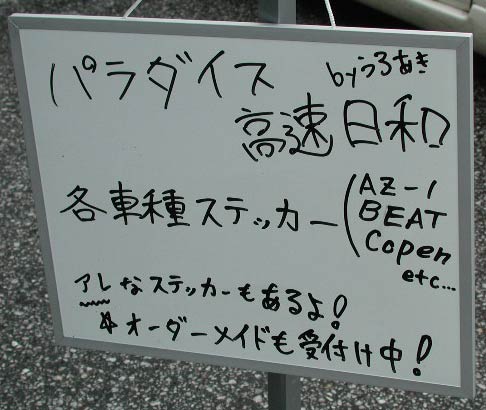 パラダイス
byうろあき
高速日和
各車種ステッカー(AZ-1
BEAT
Copen
etc...
アレなステッカーもあるよ!
オーダーメイドも受付け中!